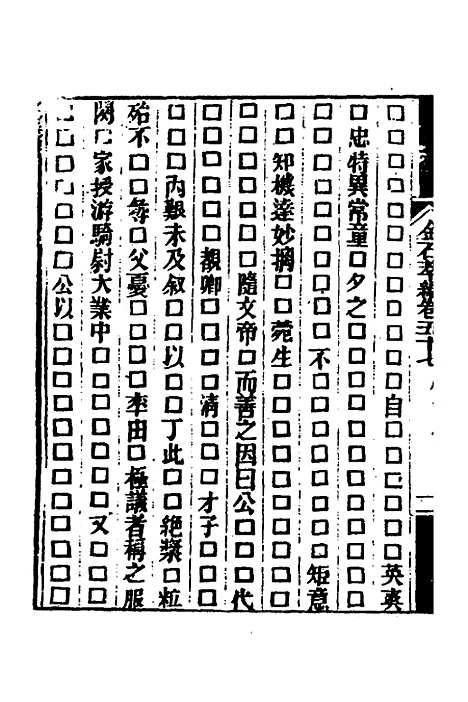 □□□□□□□□自□□□□英爽
□忠特異常童□夕之□□□□□□□□□
□□□□□□□不□□□□□短意
□□知機達妙搁□□菀生□□□□□□□□□
□□□□□隨文帝□而善之因曰公□□□代
□□□□□覩卿□□□清□□□才子□□□
□□□內艱未及叙□□以□丁此□□絶漿□粒
殆不□□毀□父憂□□□□李由□極議者稱之服
闋□家授游騎尉大業中□□□□□□□又□□
□□□□□公以□□□□□□□□□
金石萃編卷五十七